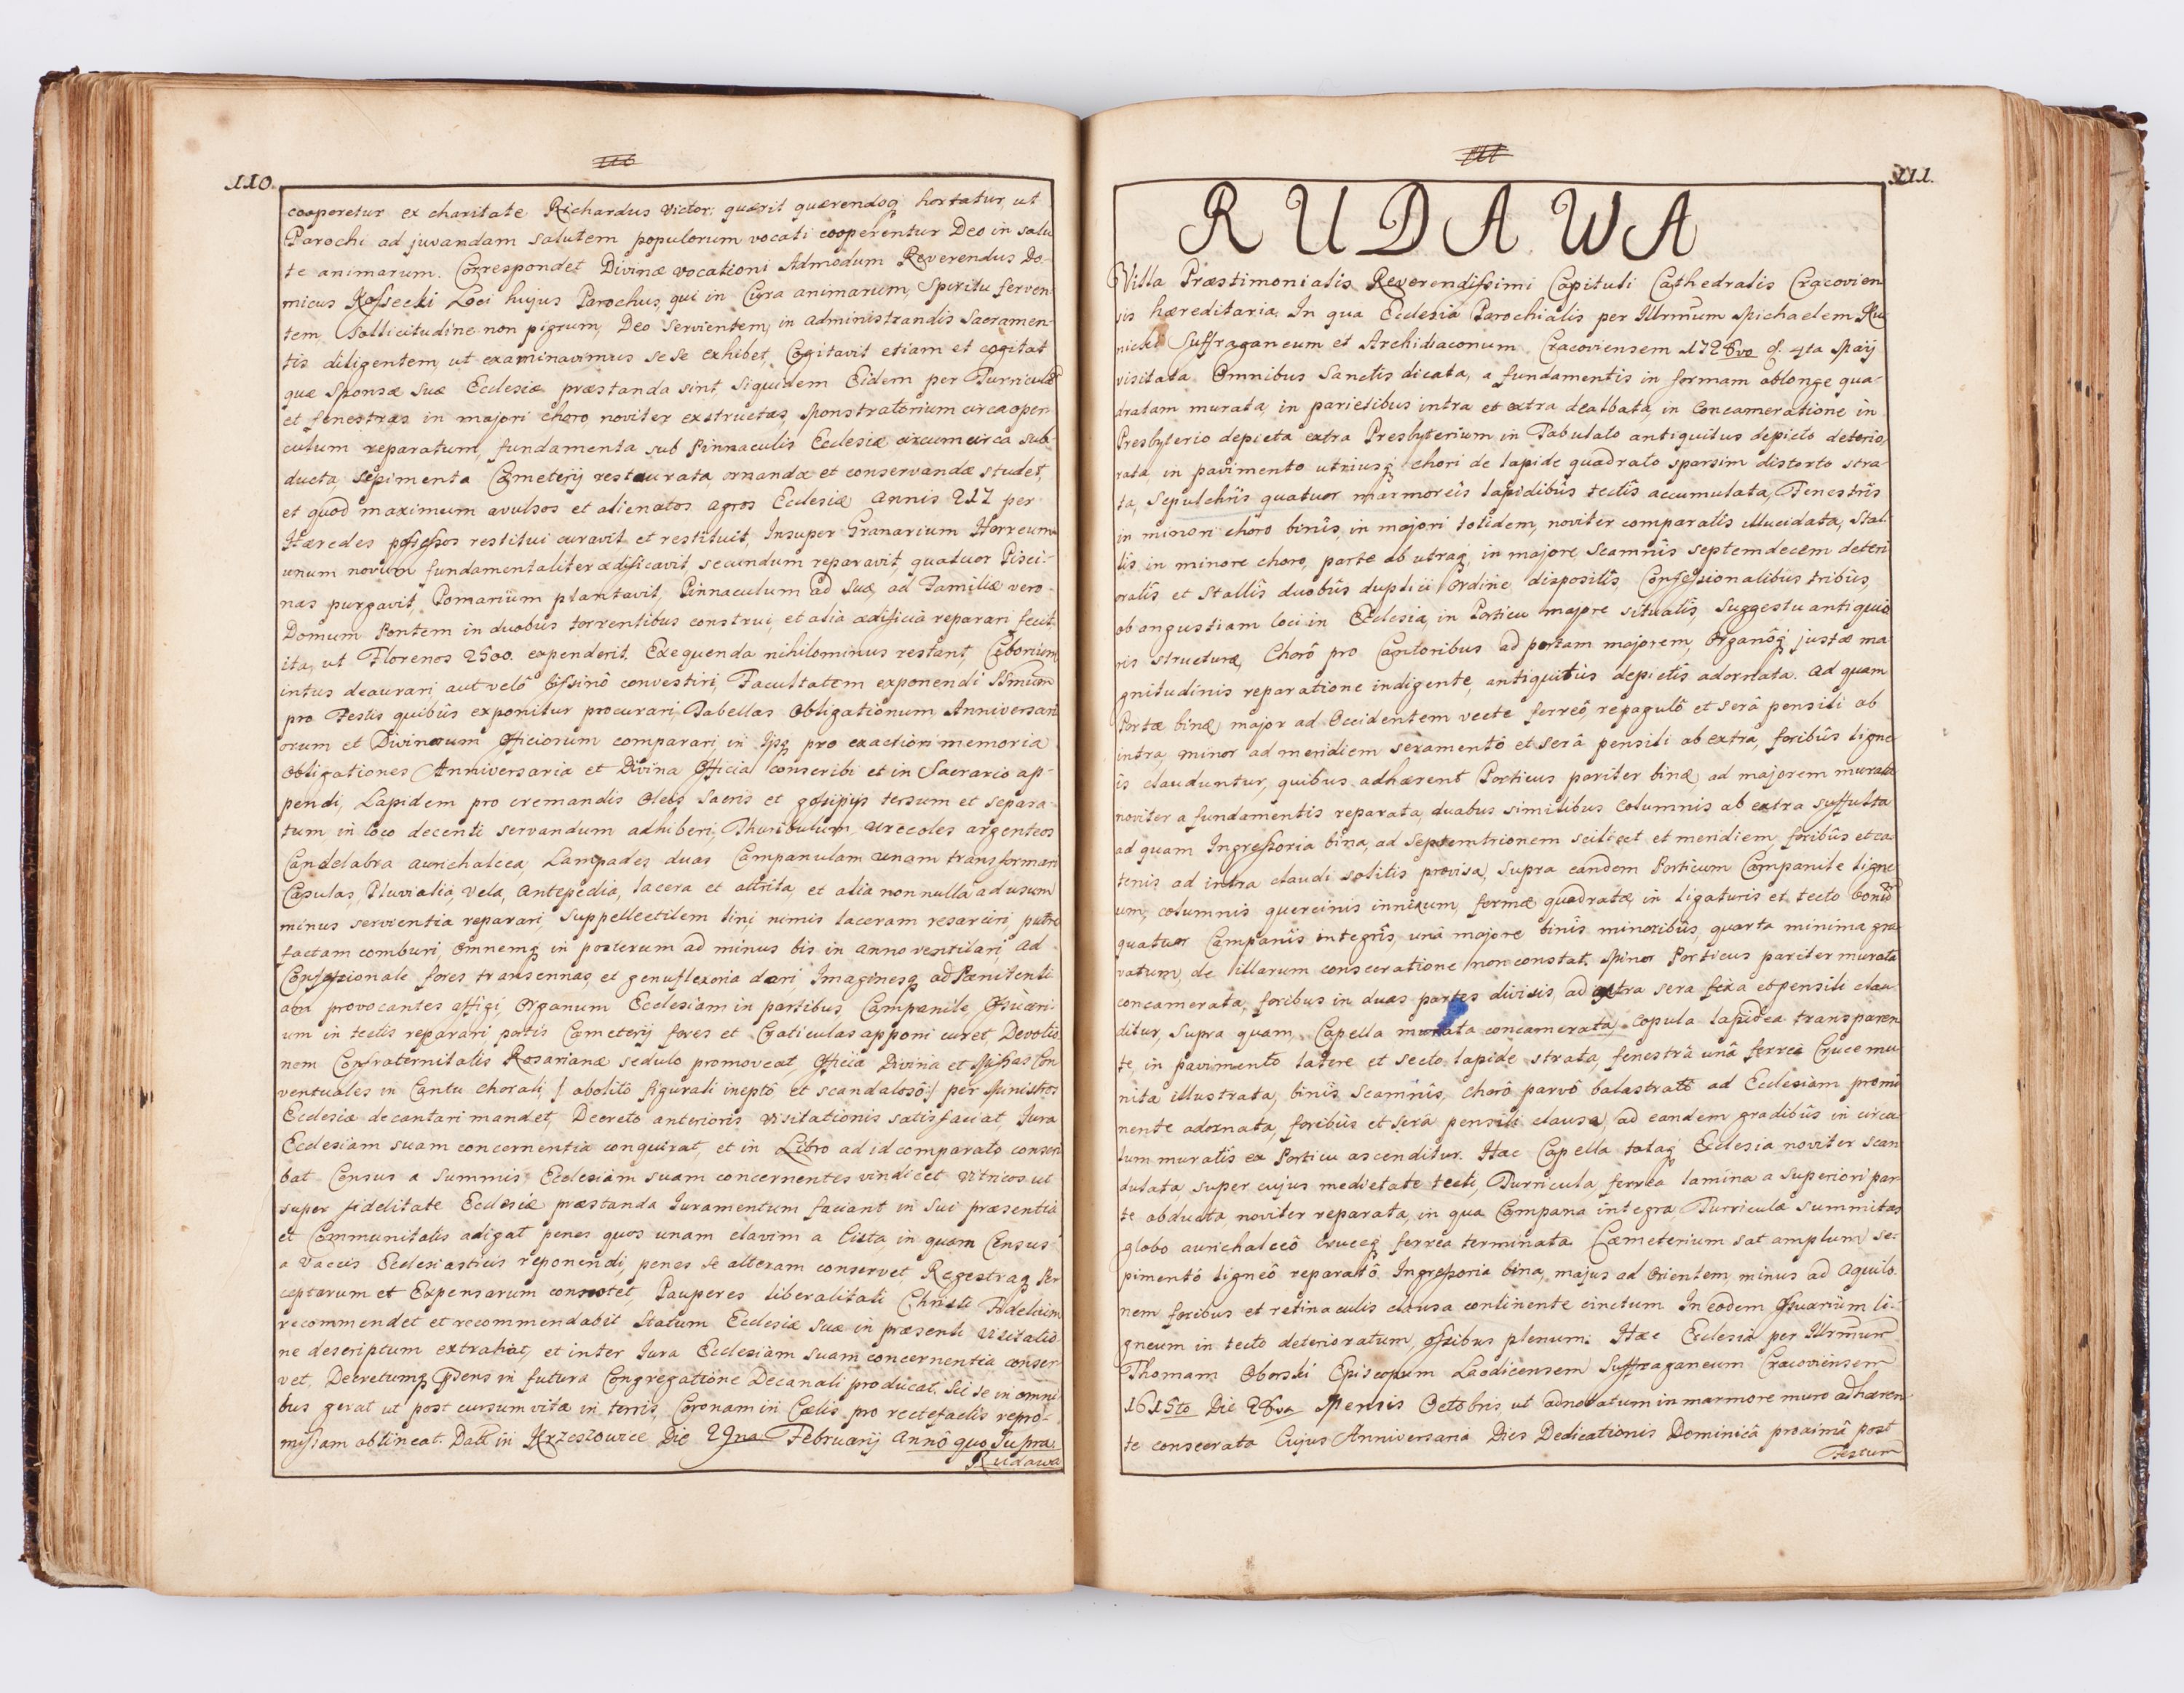 110.
cooperetur ex charitate Richardus Victor: quærit quærendoq hortatur, ut
Parochi ad juvandam salutem populorum vocati cooperentur Deo in salu
te animarum. Correspondet Divinæ vocationi Admodum Reverendus Do-
micus Kossecki Loci hujus Parochus, qui in Cura animarum, Spiritu ferven
tem, sollicitudine non pigrum, Deo Servientem, in administrandis Sacramen-
tis diligentem, ut examinavimus se se exhibet, Cogitavit etiam et cogitat
quæ Sponsæ Suæ Ecclesiæ præstanda sint, Siquidem Eidem per Turriculã
et fenestras in majori choro noviter exstructas, Monstratorium circa oper
culum reparatum, fundamenta sub Pinnaculis Ecclesiæ circumcirca sub-
ducta Sepimenta Cæmeterij restaurata, ornandæ et conservandæ studet,
et quod maximum avulsos et alienatos agros Ecclesiæ Annis 217 per
Hæredes possessos restitui curavit et restituit, Insuper Granarium Horreum
unum novum fundamentaliter ædificavit, secundum reparavit, quatuor Pisci-
nas purgavit, Pomarium plantavit, Pinnaculum ad Suã, ad Familiæ vero
Domum Pontem in duobus torrentibus construi, et alia ædificia reparari fecit.
ita, ut Florenos 2500. expenderit. Exequenda nihilominus restant, Ciborium
intus deaurari aut velô bissinô convestiri, Facultatem exponendi SSmum
pro Festis quibûs exponitur procurari, Tabellas Obligationum Anniversari
orum et Divinorum Officiorum comparari, in Ijsq pro exactiori memoria
Obligationes Anniversaria et Divina Officia conscribi et in Sacrario ap-
pendi, Lapidem pro cremandis Oleis Sacris et gossipijs tersum et separa-
tum in loco decenti servandum adhiberi, Thuribulum, Urceoles argenteos
Candelabra aurichalcea, Lampades duas Campanulam unam transformari
Casulas, Pluvialia, Vela, Antepedia, lacera et attrita, et alia nonnulla ad usum
minus servientia reparari, Suppellectilem lini, nimis laceram resarciri, putre
factam comburi, Omnemq in posterum ad minus bis in anno ventilari, ad
Confessionale fores, transennas, et genuflexoria dari, Imaginesq ad Pænitenti
am provocantes affigi, Organum Ecclesiam in partibus, Campanile, Ossuari-
um in tectis reparari, portis Cæmeterij fores et Craticulas apponi curet, Devotio
nem Confraternitatis Rosarianæ sedulo promoveat, Officia Divina et Missas Con
ventuales in Cantu Chorali, /: abolitô figurali ineptô et scandalosô :/ per Ministros
Ecclesiæ decantari mandet, Decreto anterioris Visitationis satisfaciat, Jura
Ecclesiam suam concernentia conquirat, et in Libro ad id comparato conscri
bat Census a Summis Ecclesiam suam concernentes vindicet Vitricos ut
super fidelitate Ecclesiæ præstanda Juramentum faciant in Sui præsentia
et Communitatis adigat penes quos unam clavim a Cista, in quam Census
a Vaccis Ecclesiasticis reponendi, penes se alteram conservet, Regestraq Per
ceptorum et Expensarum connotet, Pauperes liberalitati Christi Fidelium
recommendet et recommendabit Statum Ecclesiæ Suæ in præsenti Visitatio
ne descriptum extrahat, et inter Jura Ecclesiam suam concernentia conser-
vet, Decretumq Præsens in futura Congregatione Decanali producat. Sic se in omni
bus gerat ut post cursum vitæ in terris, Coronam in Cælis pro rectefactis repro-
missam obtineat. Datt in Krzeszowice Die 2Jna Februarij Annô quo Supra.
Rudawa
111.
RUDAWA
Villa Præstimonialis Reverendissimi Capituli Cathedralis Cracovien
sis hæreditaria. In qua Ecclesia Parochialis per Illrmum Michaelem Ku
nicki Suffraganeum et Archidiaconum Cracoviensem 1728vo d. 4ta Maij
visitata Omnibus Sanctis dicata, a fundamentis in formam oblonge qua-
dratam murata, in parietibus intra et extra dealbata, in Concameratione in
Presbyterio depicta extra Presbyterium in Tabulato antiquitus depicto deterio
rata in pavimento utriusq chori de lapide quadrato sparsim distorto stra-
ta, Sepulchris quatuor marmoreis lapidibûs tectis accumulata, Fenestris
in minori choro binis, in majori totidem, noviter comparatis illucidata, Stal-
lis in minore choro, parte ab utraq, in majore Scamnis septemdecem deteri
oratis et Stallis duobus duplici Ordine dispositis, Confessionalibus tribûs,
ob angustiam loci in Ecclesia, in Porticu majore situatis, Suggestu antiquio
ris structuræ, Chorô pro Cantoribus ad portam majorem, Organôq justæ ma
gnitudinis reparatione indigente, antiquitus depictis adornata. Ad quam
Portæ binæ, major ad Occidentem vecte ferreô, repagulô et serâ pensili ab
intra, minor ad meridiem seramentô et serâ pensili ab extra, foribûs ligne
is clauduntur, quibus adhærent Porticus pariter binæ, ad majorem murata
noviter a fundamentis reparata, duabus similibus Columnis ab extra suffulta
ad quam Ingressoria bina, ad Septemtrionem scilicet et meridiem, foribûs et ca-
tenis ad intra claudi solitis provisa, supra eandem Porticum Campanile ligne
um, columnis quercinis innixum, formæ quadratæ, in ligaturis et tecto bonũ
quatuor Campanis integris, unâ majore binis minoribûs, quarta minima gra
vatum, de illarum consecratione non constat. Minor Porticus pariter murata
concamerata, foribus in duas partes divisis, ad extra sera fixa et pensili clau-
ditur, Supra quam, Capella murata concamerata, Copula lapidea transparen
te, in pavimento latere et secto lapide strata, fenestrâ unâ ferrea Cruce mu
nita illustrata, binis Scamnis, Chorô parvô balastratô ad Ecclesiam promi
nente adornata, foribûs et serâ pensili clausa, ad eandem gradibûs in circu-
lum muratis ex Porticu ascenditur. Hæc Capella totaq Ecclesia noviter scan
dulata, super cujus medietate tecti, Turricula, ferrea lamina a Superiori par
te obducta noviter reparata, in qua Campana integra, Turriculæ summitas
globo aurichalceô Cruceq ferrea terminata. Cæmeterium sat amplum se-
pimentô ligneô reparatô. Ingressoria bina, majus ad Orientem, minus ad Aquilo
nem foribus et retinaculis clausa continente cinctum. In eodem Ossuarium li-
gneum in tecto deterioratum, ossibus plenum. Hæc Ecclesia per Illrmum
Thomam Oborski Episcopum Laodicensem Suffraganeum Cracoviensem
1615to Die 28va Mensis Octobris, ut adnotatum in marmore muro adhæren-
te consecrata Cujus Anniversaria Dies Dedicationis Dominicâ proximâ post
Festum